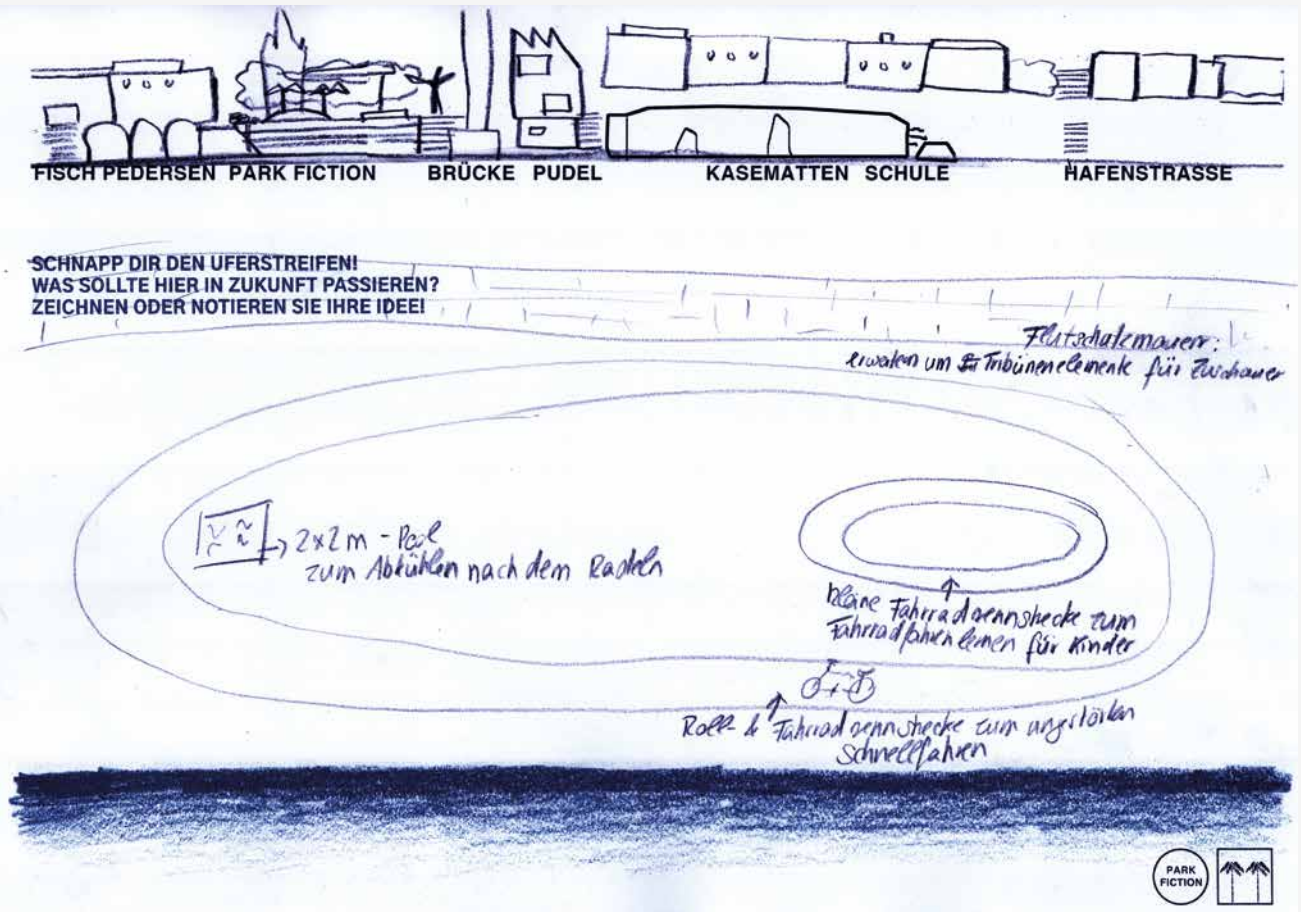 FISCH PEDERSEN PARK FICTION BRÜCKE PUDEL KASEMATTEN SCHULE HAFENSTRASSE
SCHNAPP DIR DEN UFERSTREIFEN!
WAS SOLLTE HIER IN ZUKUNFT PASSIEREN?
ZEICHNEN ODER NOTIEREN SIE IHRE IDEE!
Flutschutzmauer:
erweitern um Tribünenelemente für Zuschauer
2x2m - Pool
zum Abkühlen nach dem Radeln
kleine Fahrradrennstrecke zum
Fahrradfahren lernen für Kinder
Roll- & Fahrradrennstrecke zum ungestörten
Schnellfahren
PARK
FICTION